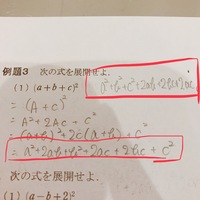 例題3 次の式を展開せよ。
a²+b²+c²+2ab+2bc+2ac
(1) (a+b+c)²
= (A+c)²
= A²+2Ac+c²
= (a+b)²+2c(a+b)+c²
= a²+2ab+b²+2ac+2bc+c²
次の式を展開せよ。
(1) (a−b+2)²